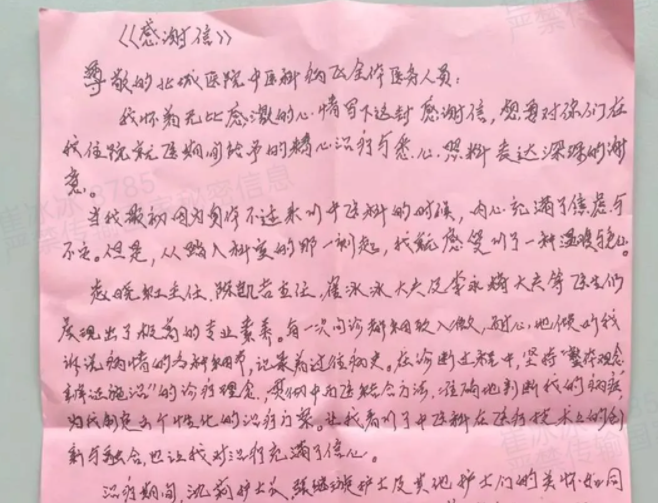 《感谢信》
尊敬的北城医院中医科病区全体医务人员：
我怀着无比感激的心情写下这封感谢信，想要对你们在
我住院就医期间给予的精心治疗与悉心照料表达深深的谢
意。
当我最初因为身体不适来到中医科的时候，内心充满了焦虑与
不安。但是，从踏入科室的那一刻起，我就感觉到了一种温暖与
主任、陈凯吉主任，崔冰冰大夫及李永 大夫等医生们
展现出了极高的专业素养。每一次问诊都细致入微，耐心地倾听我
诉说病情的各种细节，记录着过往病史。在诊断过程中，坚持"整体观念
辨证施治"的诊疗理念，贯彻中西医结合方法，准确地判断我的病
为我制定了个性化的治疗方案。让我看到了中医科在医疗技术上的创
新与融合，也让我对治疗充满了信心。
治疗期间，沈莉护士长 护士及其他护士们的关怀 同